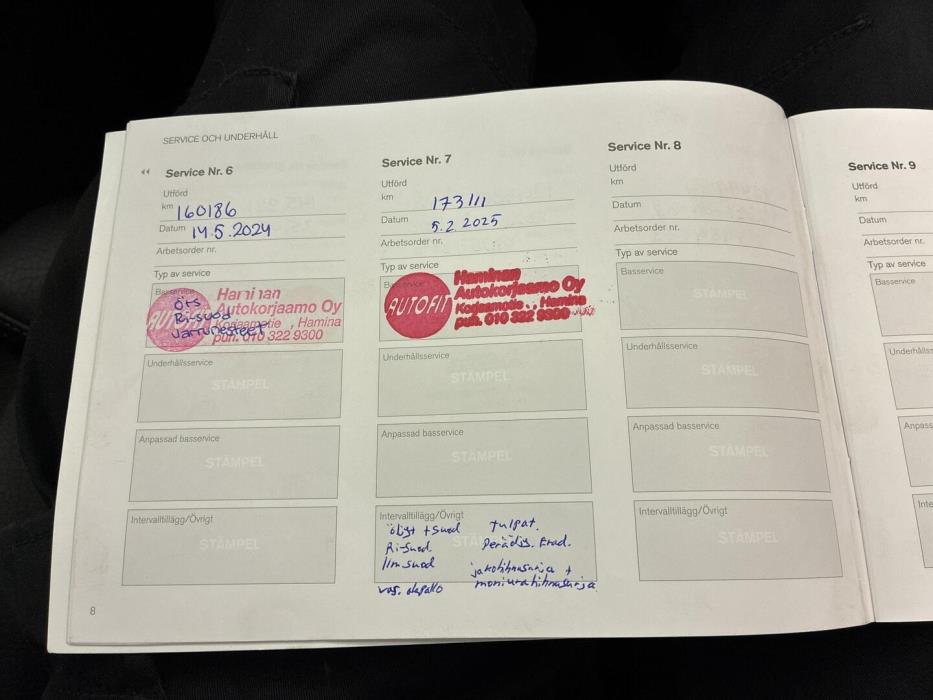 SERVICE OCH UNDERHÅLL
Service Nr. 6
Utförd
km 160186
Datum 14.5.2024
Arbetsorder nr.
Typ av service
Basservice
AUTOFIT
Haminan
Autokorjaamo Oy
Korjaamotie , Hamina
puh. 010 322 9300
öts
Ri-suod
Jarrunesteet
Underhållsservice
STÄMPEL
Anpassad basservice
STÄMPEL
Intervalltillägg/Övrigt
STÄMPEL
Service Nr. 7
Utförd
km 173111
Datum 5.2 2025
Arbetsorder nr.
Typ av service
AUTOFIT
Haminan
Autokorjaamo Oy
Korjaamotie , Hamina
puh. 010 322 9300
Underhållsservice
STÄMPEL
Anpassad basservice
STÄMPEL
Intervalltillägg/Övrigt
öljyt + suod tulpat.
Ri-suod. Perädiff.
ilm suod
jakohihnasarja +
vas. alapallo moniurahihnasarja
Service Nr. 8
Utförd
km
Datum
Arbetsorder nr.
Typ av service
Basservice
STÄMPEL
Underhållsservice
STÄMPEL
Anpassad basservice
STÄMPEL
Intervalltillägg/Övrigt
STÄMPEL
Service Nr. 9
Utförd
km
Datum
Arbetsorder nr.
Typ av service
Basservice
Underhållss
Anpass
Inte
8